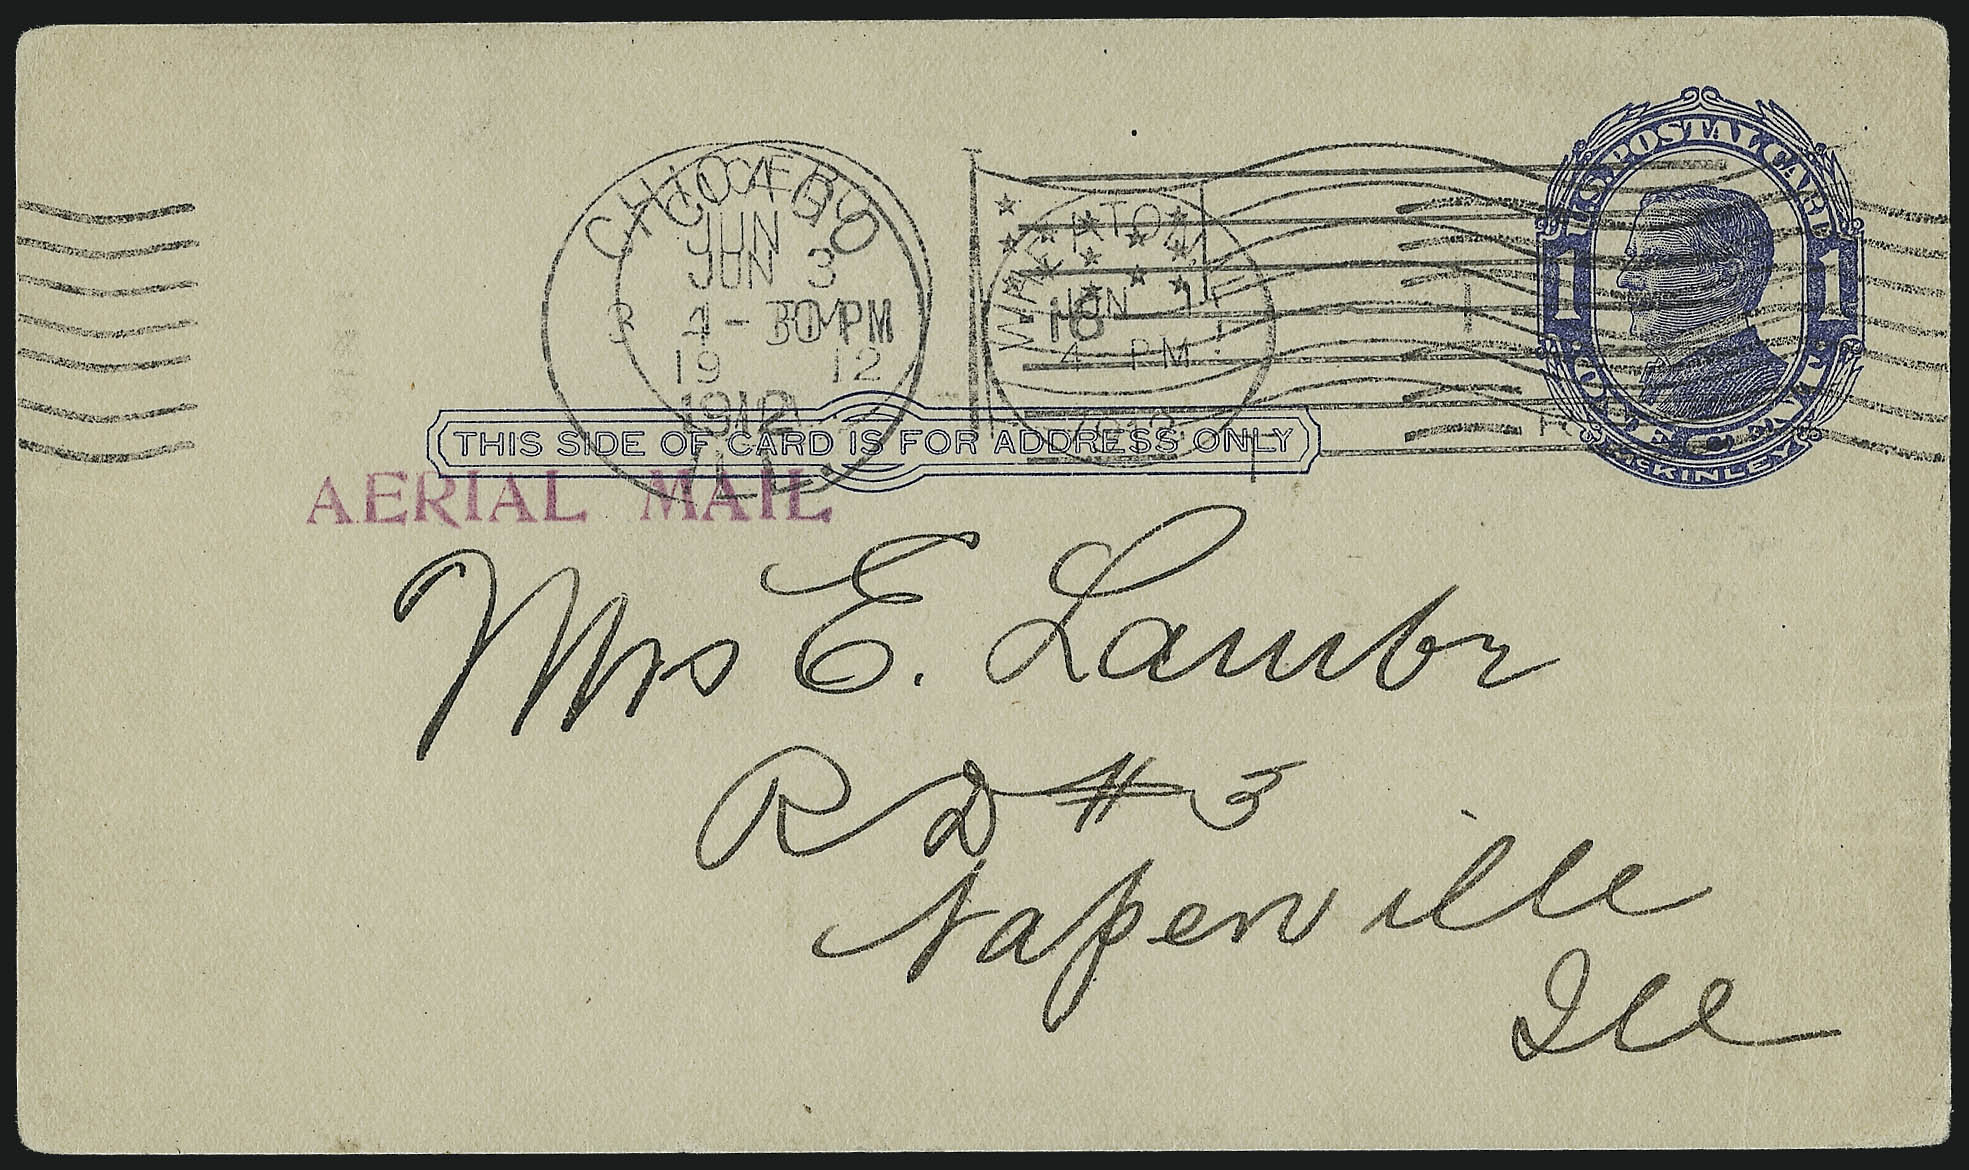 U.S. POSTAL CARD
1 1
ONE CENT
McKINLEY
CHICAGO
JUN
JUN 3
30 PM
19 12
1912
ILL.
WHEATON
JUN 1
4 PM
18
THIS SIDE OF CARD IS FOR ADDRESS ONLY
AERIAL MAIL
Mrs E. Lambr
R D # 3
Naperville
Ill